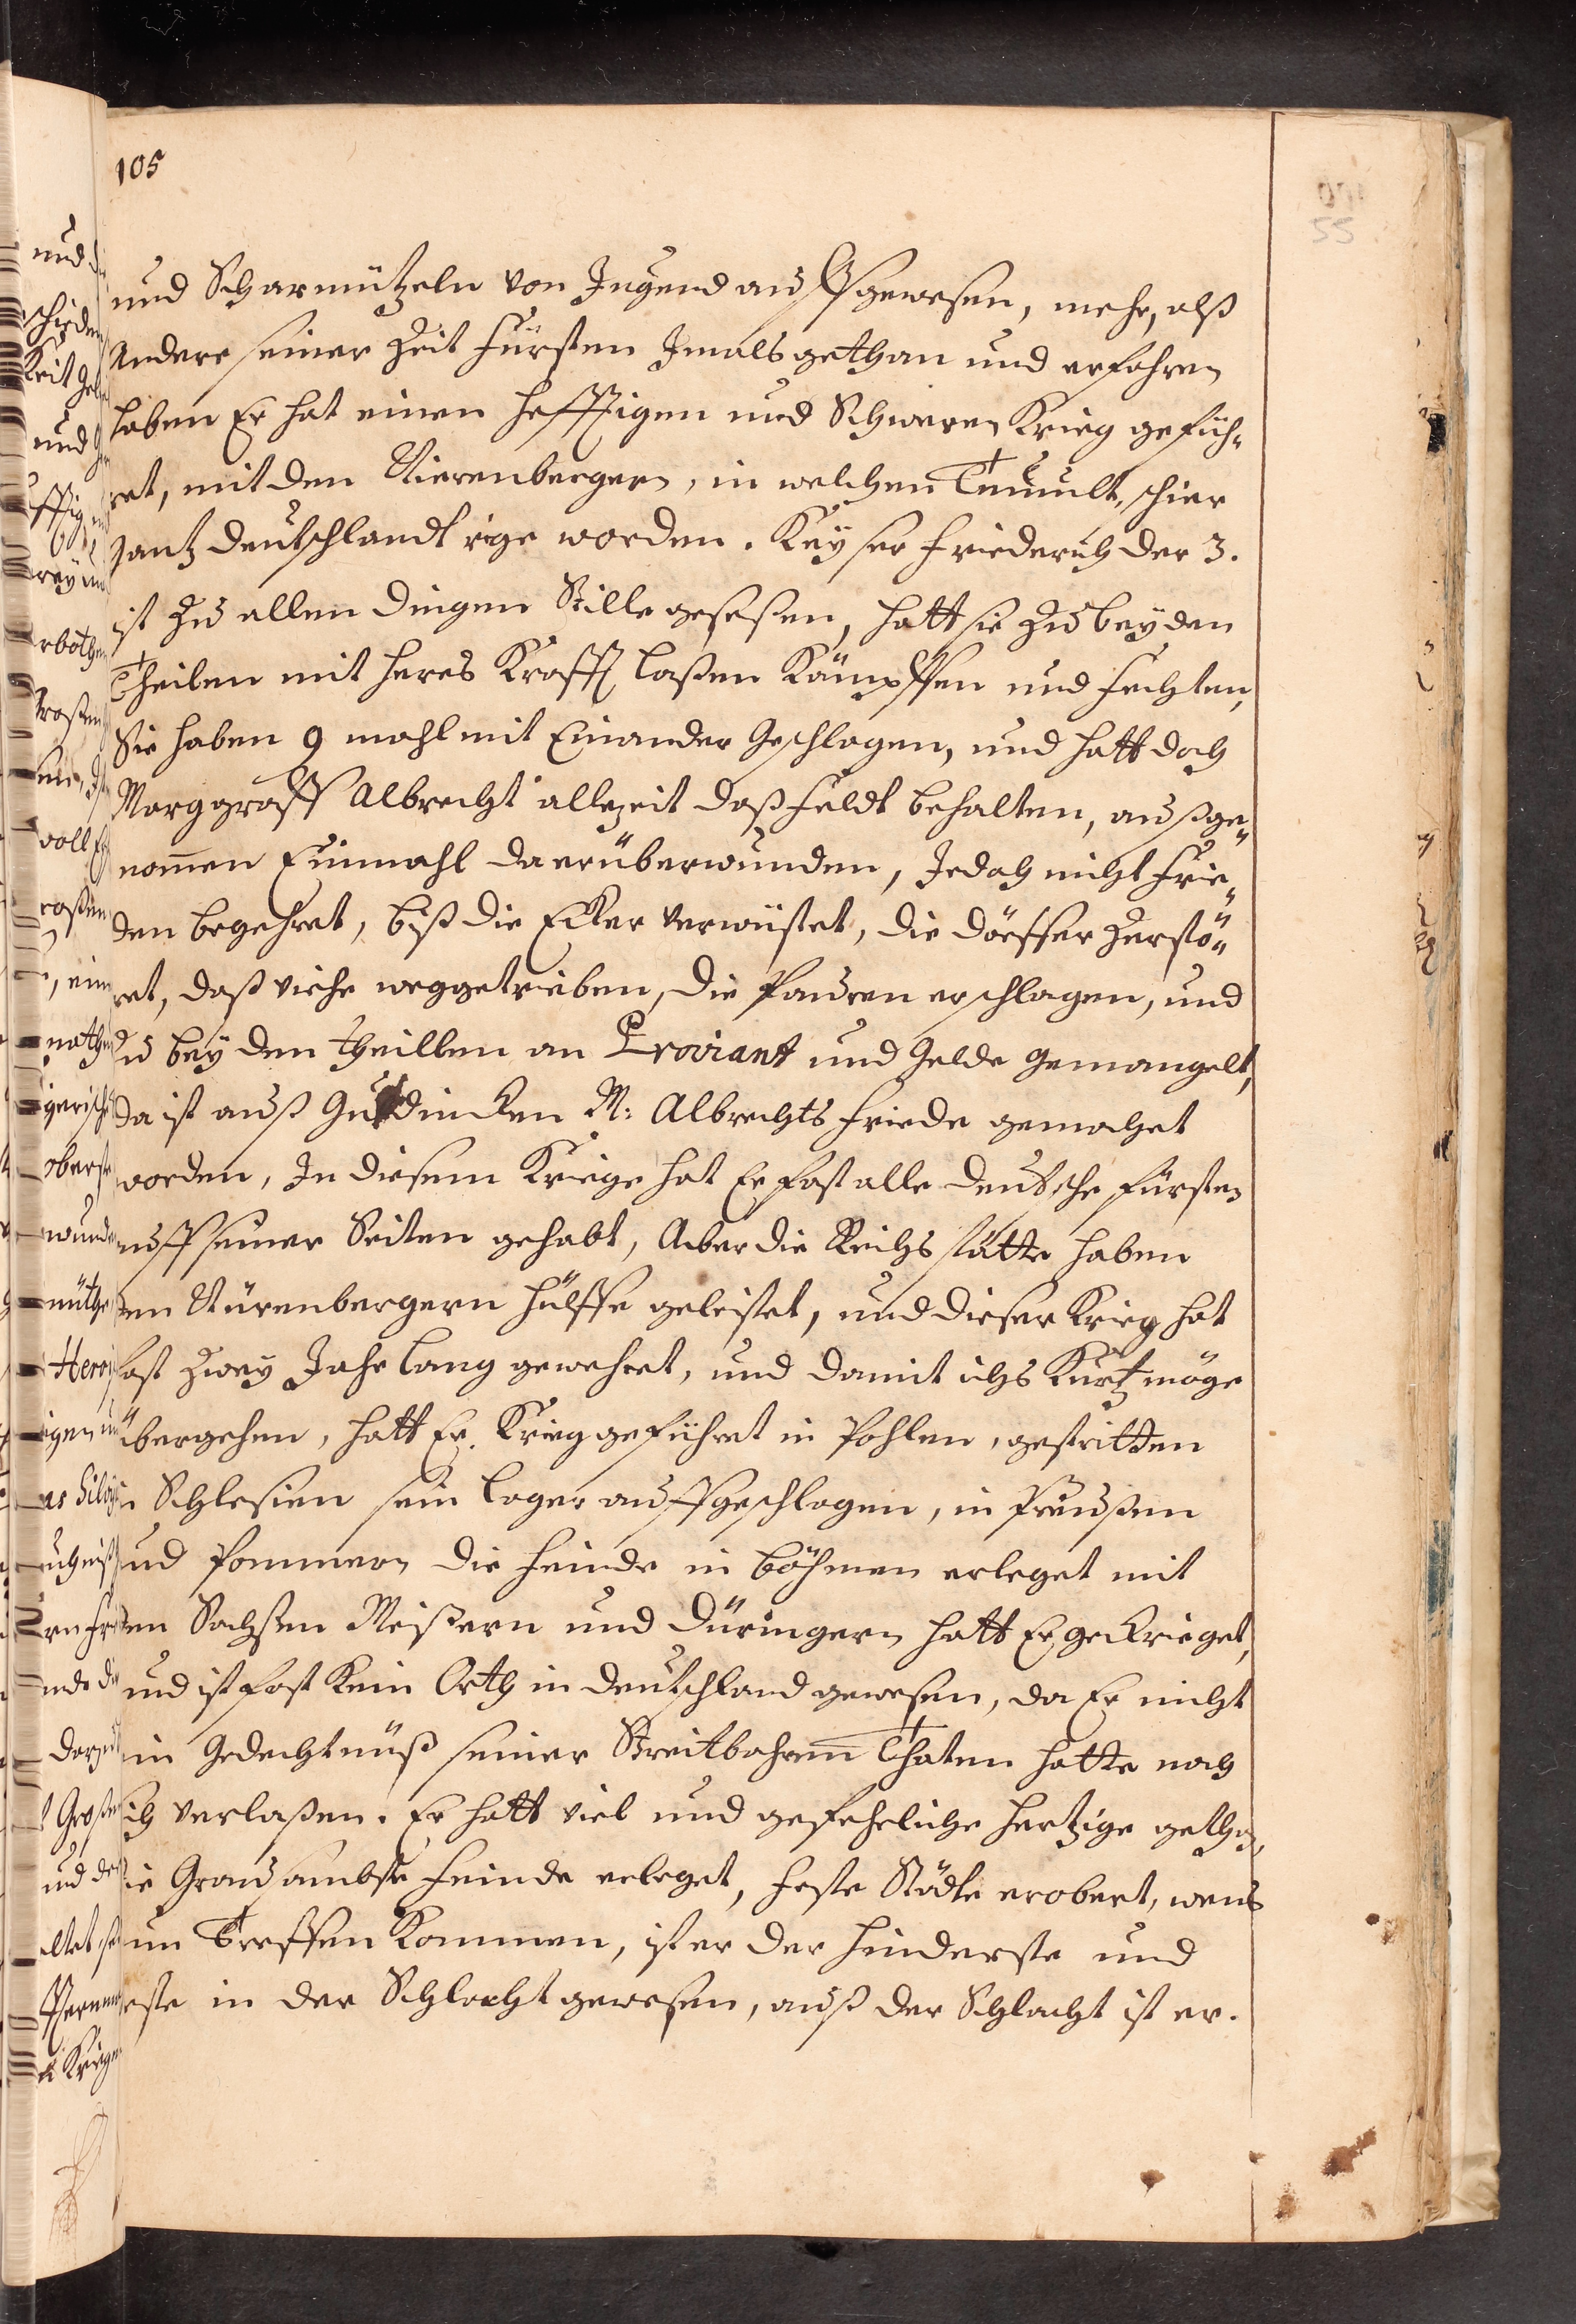 105
und Scharmützeln von Jugend auffgewesen, mehr, alß
Andere seiner Zeit Fürsten Jmals gethan und erfahren
haben Er hat einen hefftigen und Schweren Krieg gefüh¬
ret, mit den Nierenbergern, in welchen Tumult, schier
gantz deutschlandt rige worden. Keyser Friederich der 3.
ist zu allen dingen Stille geseßen, hatt sie zu beyden
Theilen mit heres Krafft laßen Kämpffen und fechten,
Sie haben 9 mahl mit Einander Geschlagen, und hatt doch
Marggraff Albrecht allezeit daß feldt behalten, außge¬
nom̄en Einmahl da er überwunden, Jedoch nicht Frie¬
den begehret, biß die Ecker verwüstet, die dörffer Zerstö¬
ret, daß viehe weggetrieben, die Pauren erschlagen, und
Zu beyden theillen an Proviant und Gelde gemangelt,
da ist auß Gutdincken M: Albrechts friede gemachet
worden, In diesem Kriege hat Er fast alle deutsche fürsten
auff seiner Seiten gehabt, Aber die Reichs stätte haben
den Nürenbergern hülffe geleistet, und dieser Krieg hat
fast zwey Jahr lang gewehret, und damit ichs Kurtz möge
übergehen, hatt Er Krieg geführet in Pohlen, gestritten
in Schlesien sein lager auffgeschlagen, in Preußen
und Pommern die Feinde in böhmen erleget mit
den Sachsen Meißern und Düringern hatt Er gekrieget,
und ist fast Kein Orth in deutschland gewesen, da Er nicht
ein Gedechtnüß seiner Streitbahren Thaten hatte nach
sich verlaßen. Er hatt viel und gefehrliche hertzige gethan,
die Grausambste Feinde erleget, feste Städte erobert, wens
zum Treffen Kommen, ist er der hinderste und
erste in der Schlacht gewesen, auß der Schlacht ist er.